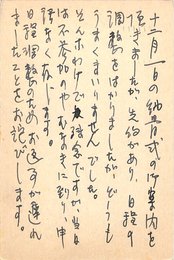 十二月一日の納骨式の御案内を
頂きましたが、先約があり、日程の
調整をはかりましたが、どうも
うまくまいりませんでした。
そんなわけで残念ですが当日
は不参加のやむなきに到り、申
訳なく存じます。
日程調整のためお返事が遅れ
ましたことをお詫びします。